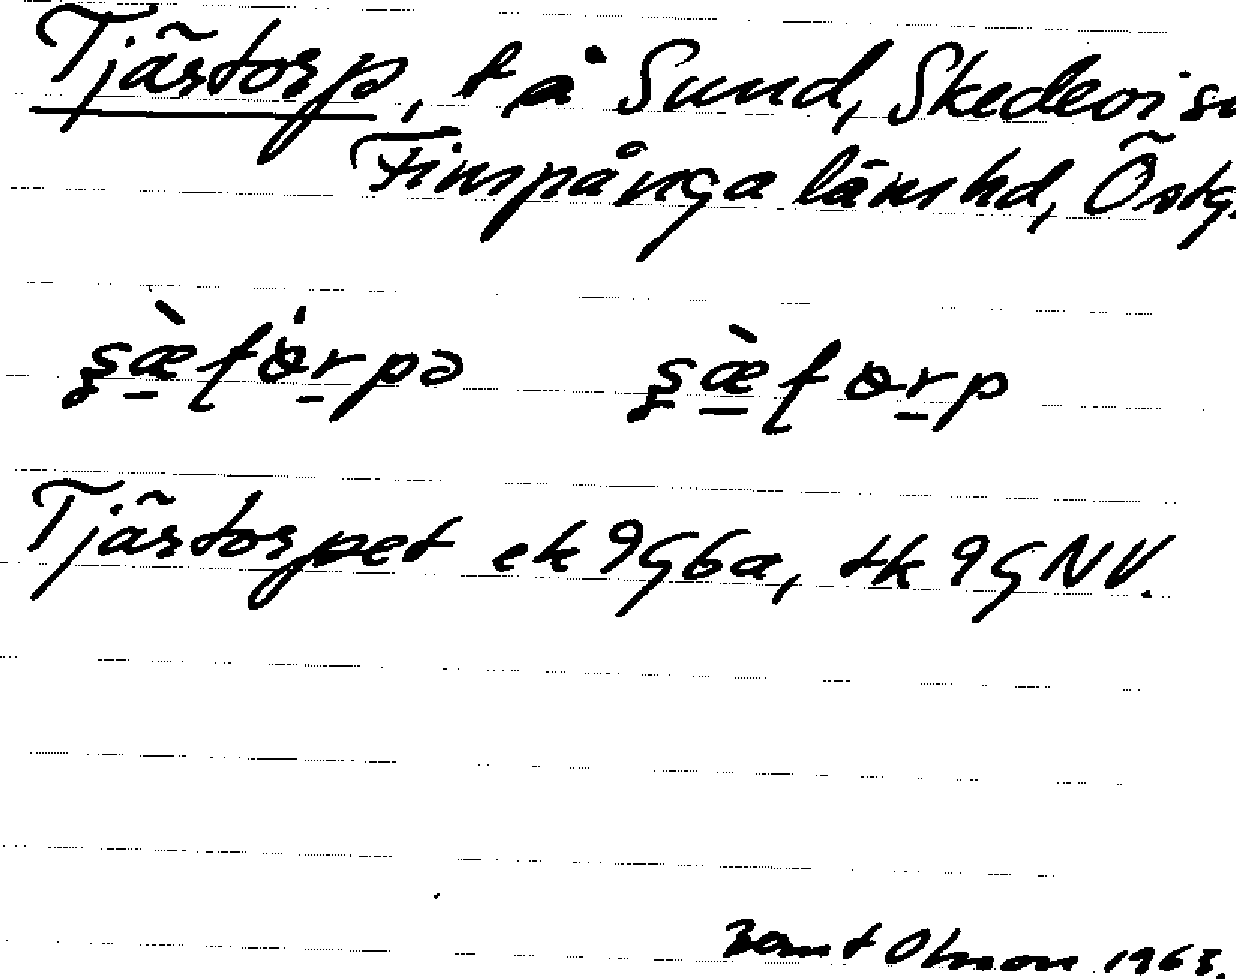 Tjärtorp, t på Sund, Skedevi sn
Finspånga läns hd, Östg.
Tjärtorpet ek 9G6a, tk 9G NV.
Bernt Olsson 1963.